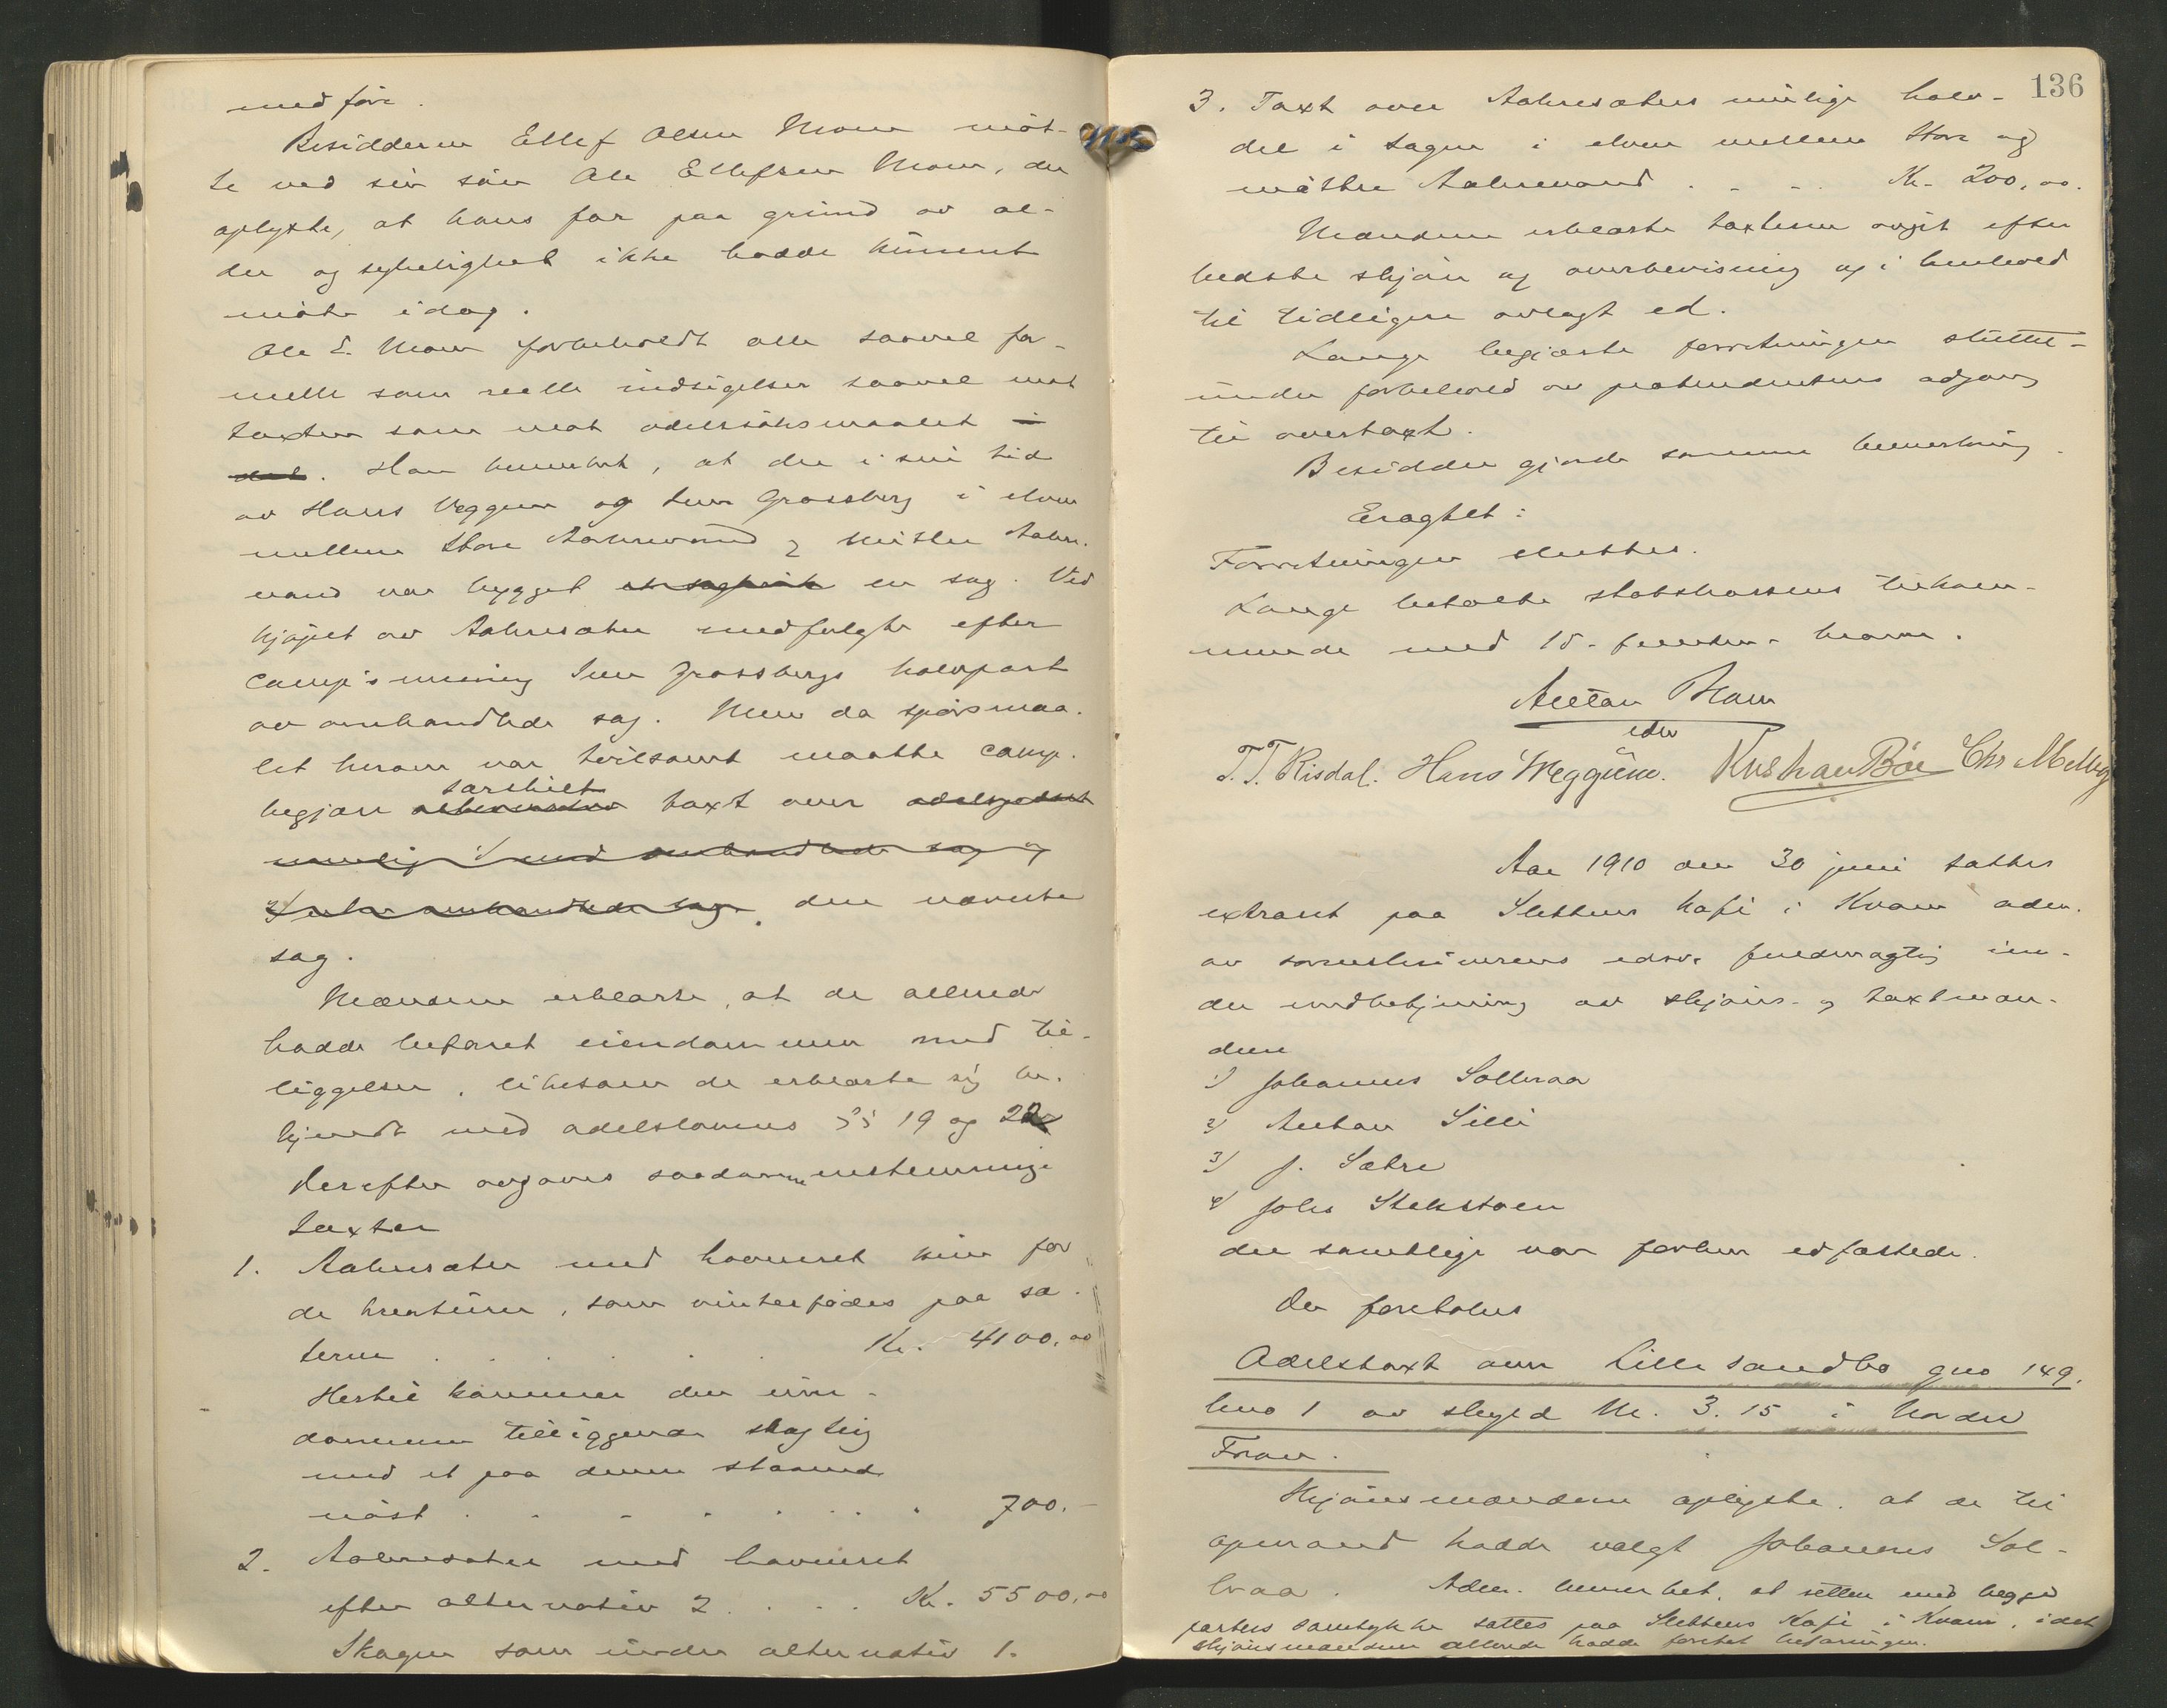 medføre.
Besidderen Ellef Olsen Moen møt-
te ved sin søn Ole Ellefsen Moen, der
oplyste, at hans far paa grund av al-
der og sykelighet ikke hadde kunnet
møte idag.
Ole E. Moen forbeholdt alle saavel for-
melle som reelle indsigelser saavel mot
taxten som mot odelssøksmaalet i
det. Han bemerket, at der i sin tid
av Hans Veggum og Iver Grossberg i elven
mellem Store Aakrevand og Midtre Aakre-
vand var bygget en sag. Ved
kjøpet av Aakresæter medfulgte efter
Camp's mening Iver Grossbergs halvpart
av omhandlede sag. Men da spørsmaa-
let herom var tvilsomt maatte Camp
særskilt
begjære alternativ taxt over odelsgodset
nemlig 1) med omhandlede sag og
2) uten omhandlede sag. den nævnte
sag.
Mændene erklærte, at de allerede
hadde befaret eiendommen med til-
liggelser, likesom de erklærte sig be-
kjendt med odelslovens §§ 19 og 22
Derefter avgaves saadanne enstemmige
taxter
1. Aakresæter med havneret kun for
de kreaturer, som vinterfødes paa sæ-
teren . . . . . Kr. 4100,00
Hertil kommer den eien-
dommen tilliggende skogteig
med et paa denne staaende
nøst . . . . . . . 700.-
2. Aakresæter med havneret
efter alternativ 2 . . . . Kr. 5500,00
Skogen som under alternativ 1.
136
3. Taxt over Aakresæters mulige halv-
del i sagen i elven mellem Store og
midtre Aakrevand . . . . Kr. 200,00.
Mændene erklærte taxterne avgit efter
bedste skjøn og overbevisning og i henhold
til tidligere avlagt ed.
Lange begjærte forretningen sluttet
under forbehold av prætendentens adgang
til overtaxt.
Besidder gjorde samme bemerkning.
Eragtet:
Forretningen sluttes.
Lange betalte statskassens tilkom-
mende med 15 - femten - kroner.
Aletan Bram
edsv
T. T. Risdal. Hans Weggum. Kristian Bøe Chr Melby
Aar 1910 den 30 juni sattes
extraret paa Slettens kafé i Kvam adm.
av sorenskriverens edsv. fuldmægtig un-
der medbetjening av skjøns- og taxtmæn-
dene
1) Johannes Solbraa
2) Anton Lilli
3) J. Sætre
4) Johs Stekstoen
der samtlige var forhen edfæstede.
Der foretokes
Odelstaxt over Lille Sandbo gno 149.
bno 1 av skyld Mk. 3.15 i Nordre
Fron.
Skjønsmændene oplyste, at de til
opmand hadde valgt Johannes Sol-
braa. Adm. bemerket, at retten med begge
parters samtykke sattes paa Slettens Kafé i Kvam, idet
skjønsmændene allerede hadde foretat befaringen.